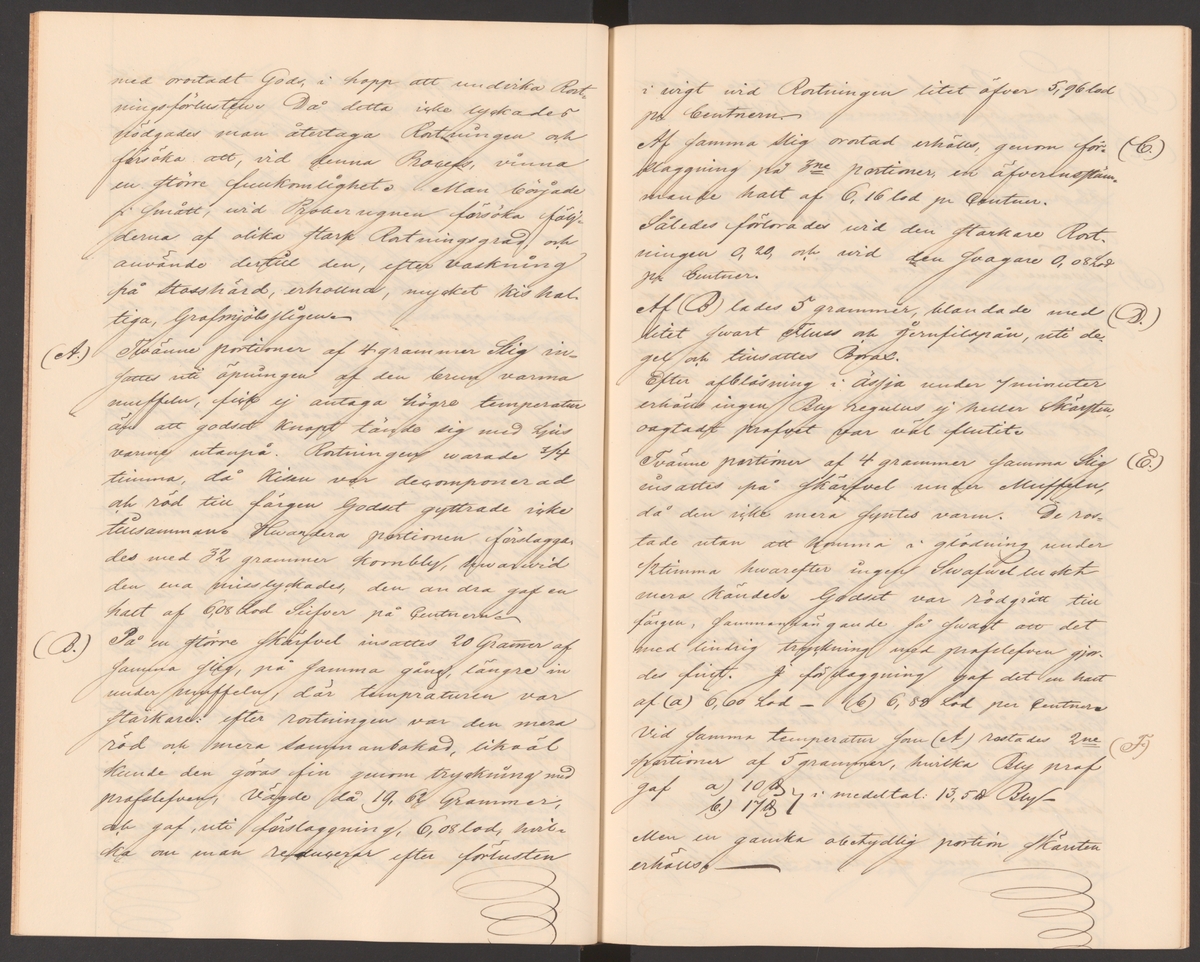 med orostadt Gods, i hopp att undvika Rost-
ningsförlusten. Då detta icke lyckades
nödgades man återtaga Rostningen och
försöka att, vid denna Process, vinna
en större fullkomlighet. Man började
i smått, wid Proberugnen försöka följ-
derna af olika stark Rostningsgrad, och
använde dertill den, efter vaskning
på Stosshärd, erhållna, mycket kishal-
tiga, Grofmjölssligen.
(A.) Tvänne portioner af 4 grammer Slig in-
sattes uti öpningen af den brun varma
muffeln, fick ej antaga högre temperatur
än att godset knapt tände sig med ljus
varme utanpå. Rostningen warade 3/4
timma, då kisen var decomponerad
och röd till färgen Godset gyttrade icke
tillsamman. Hwardera portionen förslagga-
des med 32 grammer Kornbly, hwarvid
den ena misslyckades, den andra gaf en
halt af 6,08 Lod Silfver på Centnern.
(B.) På en större skärfvel insattes 20 Gramer af
samma slig, på samma gång, längre in
under muffeln, där tempraturen var
starkare: efter rostningen var den mera
röd och mera sammanbakad, likväl
kunde den göras fin genom tryckning med
profslefven, vägde då 19,62 Grammer,
och gaf, uti förslaggning, 6,08 lod, hvil-
ka om man reducerar efter förlusten
i wigt wid Rostningen litet öfver 5,96 lod
pr Centnern.
Af samma slig orostad erhölls, genom för- (C.)
slaggning på 3ne portioner, en äfverensstäm-
mande halt af 6,16 lod pr Centner.
Således förlorades wid den starkare Rost-
ningen 0,20, och wid den svagare 0,08 Lod
pr Centner.
Af (B) lades 5 grammer, blandade med (D.)
litet swart Fluss och Jernfilspån, uti de-
gel och tillsattes Borax.
Efter afblåsning i Ässja under 7 minuter
erhölls ingen Bly regulus ej heller Skärsten,
oagtadt profvet var väl flutit.
Tvänne portioner af 4 grammer samma Slig (E.)
insattes på skärfvel under Muffeln,
då den icke mera syntes varm. De ros-
tade utan att komma i glödning under
1/2 timma hwarefter ingen Swafwelluckt
mera kändes. Godset var rödgrått till
färgen, sammanhängande så swagt att det
med lindrig tryckning med profslefven gjor-
des fint. I förslaggning gaf det en halt
af (a) 6,60 Lod — (b) 6,88 Lod per Centner.
Vid samma temperatur som (A) rostades 2ne (F.)
portioner af 5 grammer, hvilka Bly prof
gaf a) 10 ℔
b) 17 ℔ } i medeltal: 13,5 ℔ Bly.
Men en ganska obetydlig portion skärsten
erhölls.